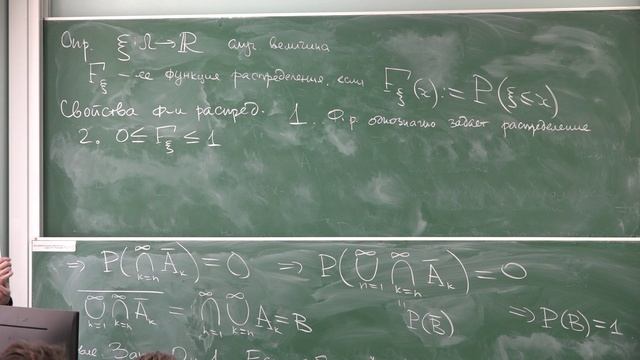 Опр. ξ: Ω → ℝ случ величина
F_ξ – ее функция распределения, если F_ξ(x) := P(ξ ≤ x)
Свойства ф-ии распред. 1. Ф.р. однозначно задает распределение
2. 0 ≤ F_ξ ≤ 1
⇒ P(⋂_{k=n}^∞ Ā_k) = 0 ⇒ P(⋃_{n=1}^∞ ⋂_{k=n}^∞ Ā_k) = 0
\overline{⋃_{n=1}^∞ ⋂_{k=n}^∞ Ā_k} = ⋂_{n=1}^∞ ⋃_{k=n}^∞ A_k = B P(B̄) ⇒ P(B) = 1